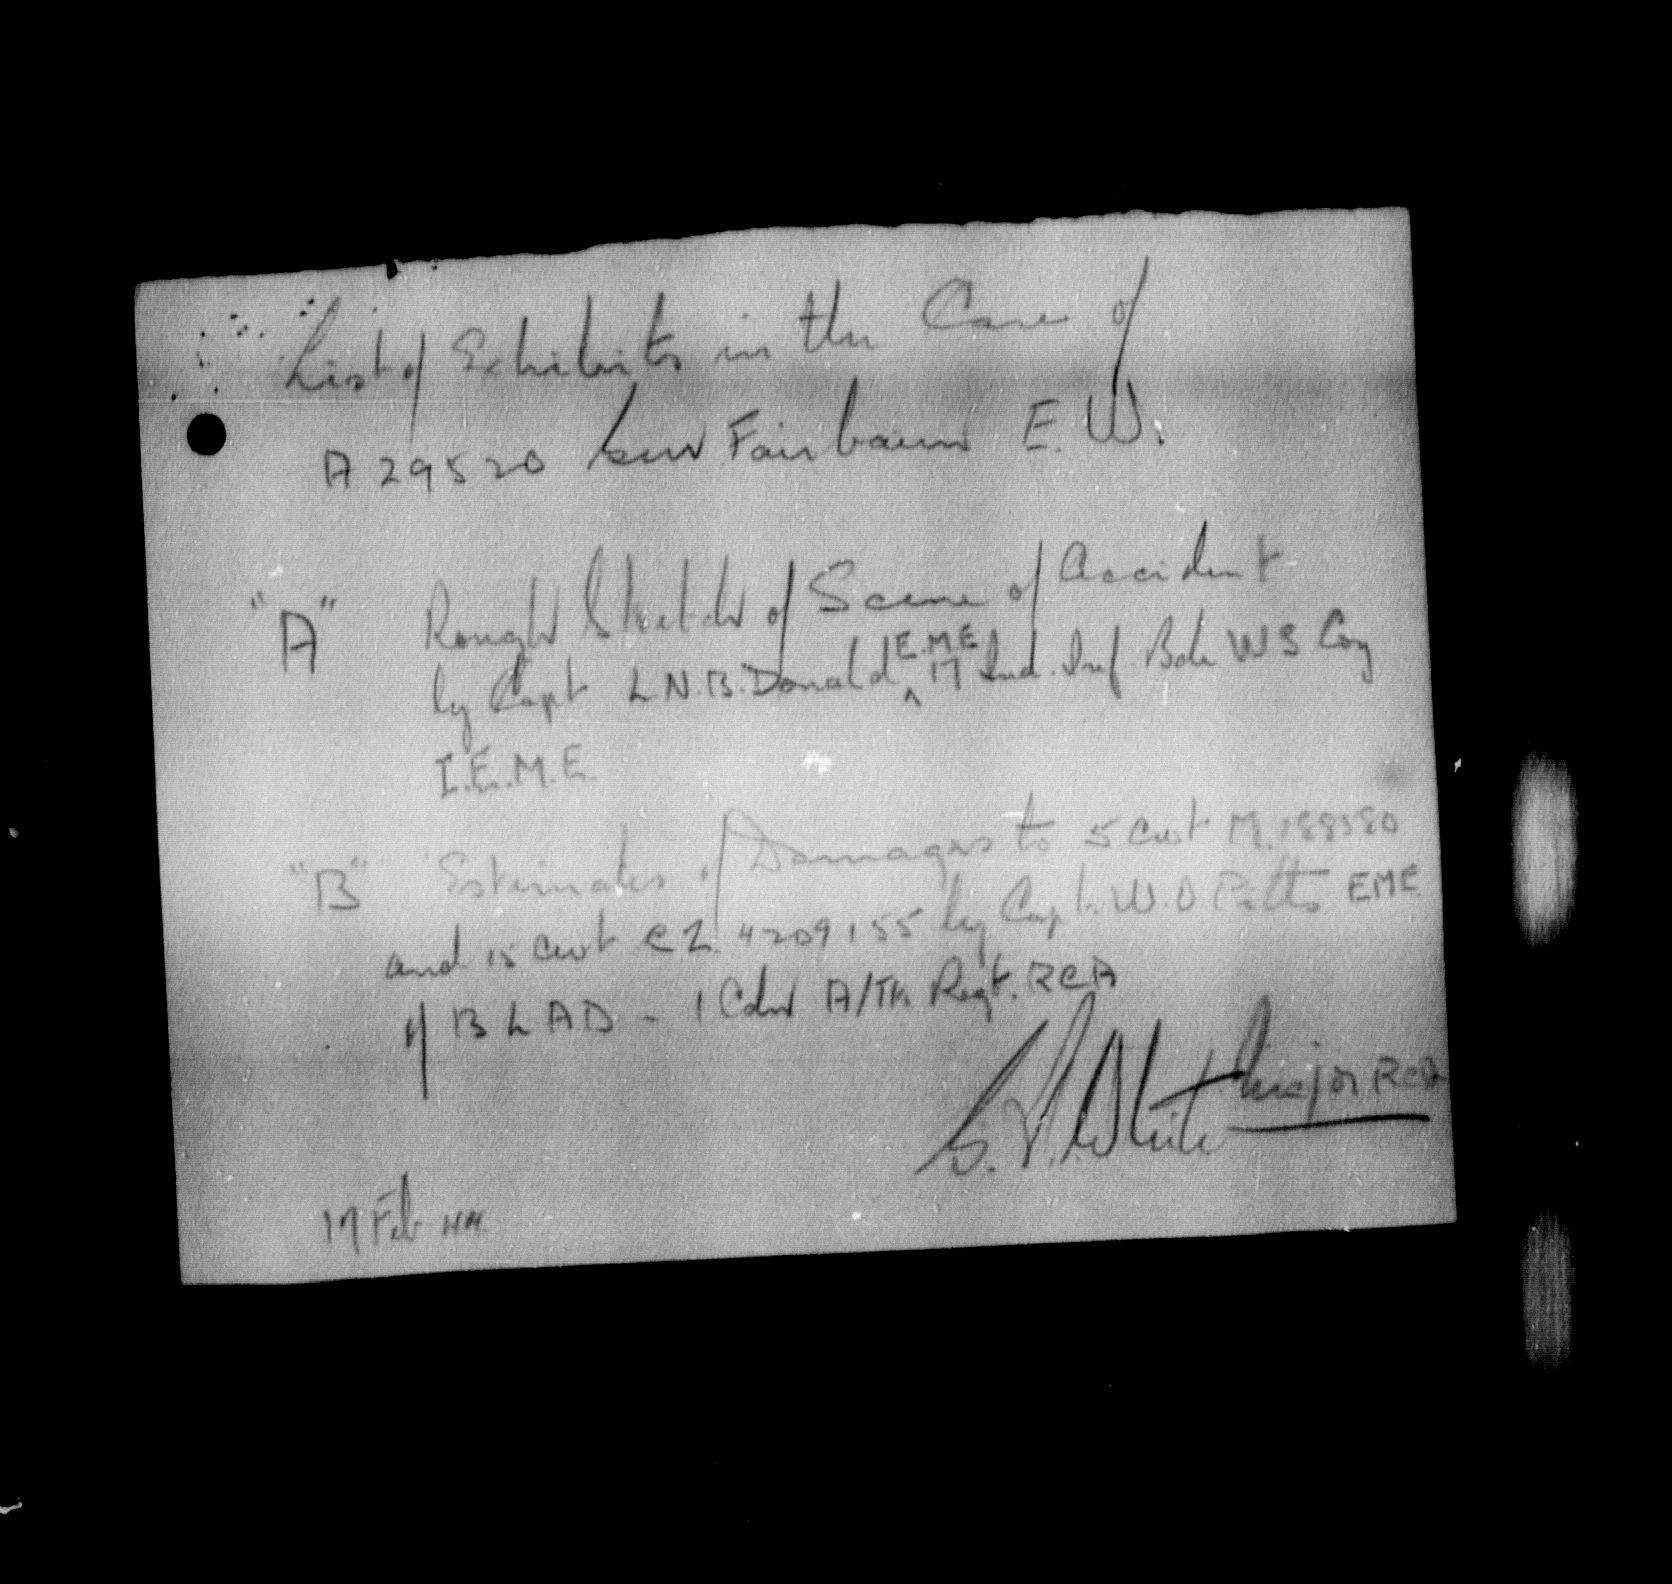 List of Exhibits in the Case of
A 29520 Gnr Fairbairn E. W.
"A" Rough Sketch of Scene of Accident
by Capt L N.B. Donald E.M.E 17 Ind. Inf. Bde W S Coy
I.E.M.E.
"B" Estimates of Damages to 5 cwt M.188580
and 15 cwt CZ 4209155 by Capt. W. O Potts EME
of B LAD - 1 Cdn A/Tk Regt. RCA
White Major RCA
17 Feb 44